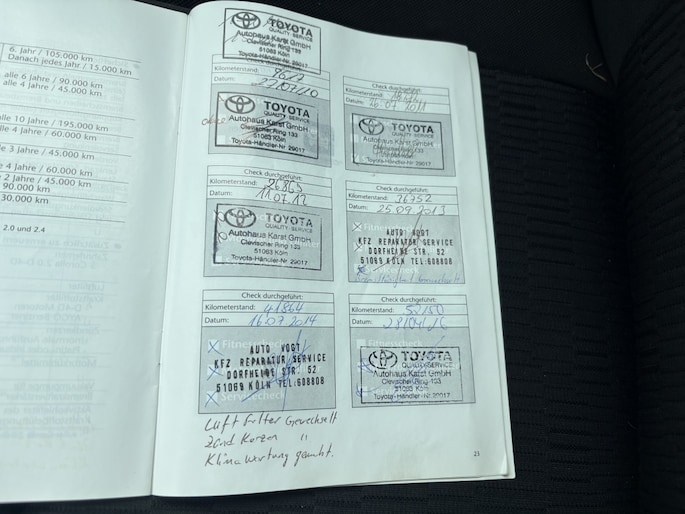 6. Jahr / 105.000 km
Danach jedes Jahr / 15.000 km
alle 6 Jahre / 90.000 km
alle 4 Jahre / 45.000 km
alle 10 Jahre / 195.000 km
alle 4 Jahre / 60.000 km
alle 3 Jahre / 45.000 km
4 Jahre / 60.000 km
2 Jahre / 45.000 km
90.000 km
30.000 km
2.0 und 2.4
TOYOTA
QUALITY SERVICE
Autohaus Karst GmbH
Clevischer Ring 133
51063 Köln
Toyota-Händler-Nr. 29017
Kilometerstand:
Datum: 22/07/10
TOYOTA
QUALITY SERVICE
Autohaus Karst GmbH
Clevischer Ring 133
51063 Köln
Toyota-Händler-Nr. 29017
Check durchgeführt:
Kilometerstand:
Datum: 26.07.2011
TOYOTA
QUALITY SERVICE
Autohaus Karst GmbH
Clevischer Ring 133
51063 Köln
Toyota-Händler-Nr. 29017
Check durchgeführt:
Kilometerstand: 26865
Datum: 11.07.12
TOYOTA
QUALITY SERVICE
Autohaus Karst GmbH
Clevischer Ring 133
51063 Köln
Toyota-Händler-Nr. 29017
Check durchgeführt:
Kilometerstand: 36752
Datum: 25.09.2013
AUTO VOGT
KFZ REPARATUR SERVICE
DORFHEIDE STR. 52
51069 KÖLN TEL:608808
Check durchgeführt:
Kilometerstand: 41864
Datum: 16.07.2014
Fitnesscheck
AUTO VOGT
KFZ REPARATUR SERVICE
DORFHEIDE STR. 52
51069 KÖLN TEL:608808
Servicecheck
Check durchgeführt:
Kilometerstand: 52150
Datum: 28/04/16
Fitnesscheck
TOYOTA
QUALITY SERVICE
Autohaus Karst GmbH
Clevischer Ring 133
51063 Köln
Toyota-Händler-Nr. 29017
Lüft Filter Gewechselt
Zünd Kerzen "
Klima Wartung gemacht.
23